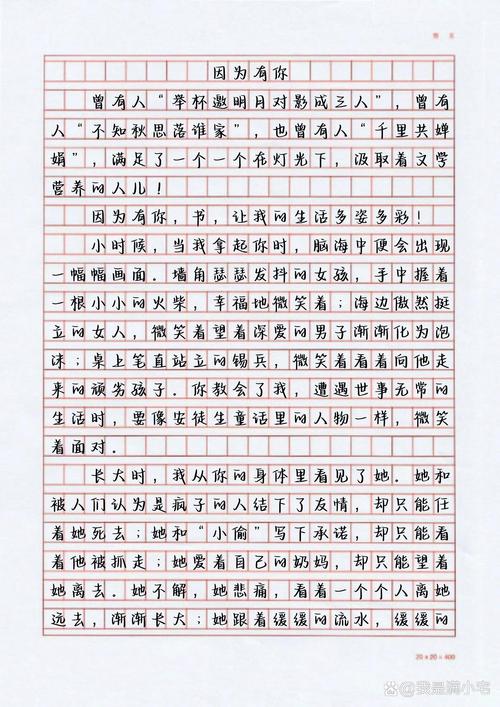 因为有你
曾有人“举杯邀明月对影成三人”，曾有
人“不知秋思落谁家”，也曾有人“千里共婵
娟”，满足了一个一个在灯光下，汲取着文学
营养的人儿！
因为有你，书，让我的生活多姿多彩！
小时候，当我拿起你时，脑海中便会出现
一幅幅画面．墙角瑟瑟发抖的女孩，手中握着
一根小小的火柴，幸福地微笑着；海边傲然挺
立的女人，微笑着望着深爱的男子渐渐化为泡
沫；桌上笔直站立的锡兵，微笑着看着向他走
来的顽劣孩子．你教会了我，遭遇世事无常的
生活时，要像安徒生童话里的人物一样，微笑
着面对．
长大时，我从你的身体里看见了她．她和
被人们认为是疯子的人结下了友情，却只能任
着她死去；她和“小偷”写下承诺，却只能看
着他被抓走；她爱着自己的奶妈，却只能望着
她离去．她不解，她悲痛，看着一个个人离她
远去，渐渐长大；她跟着缓缓的流水，缓缓的
20×20=400
@我是满小宅